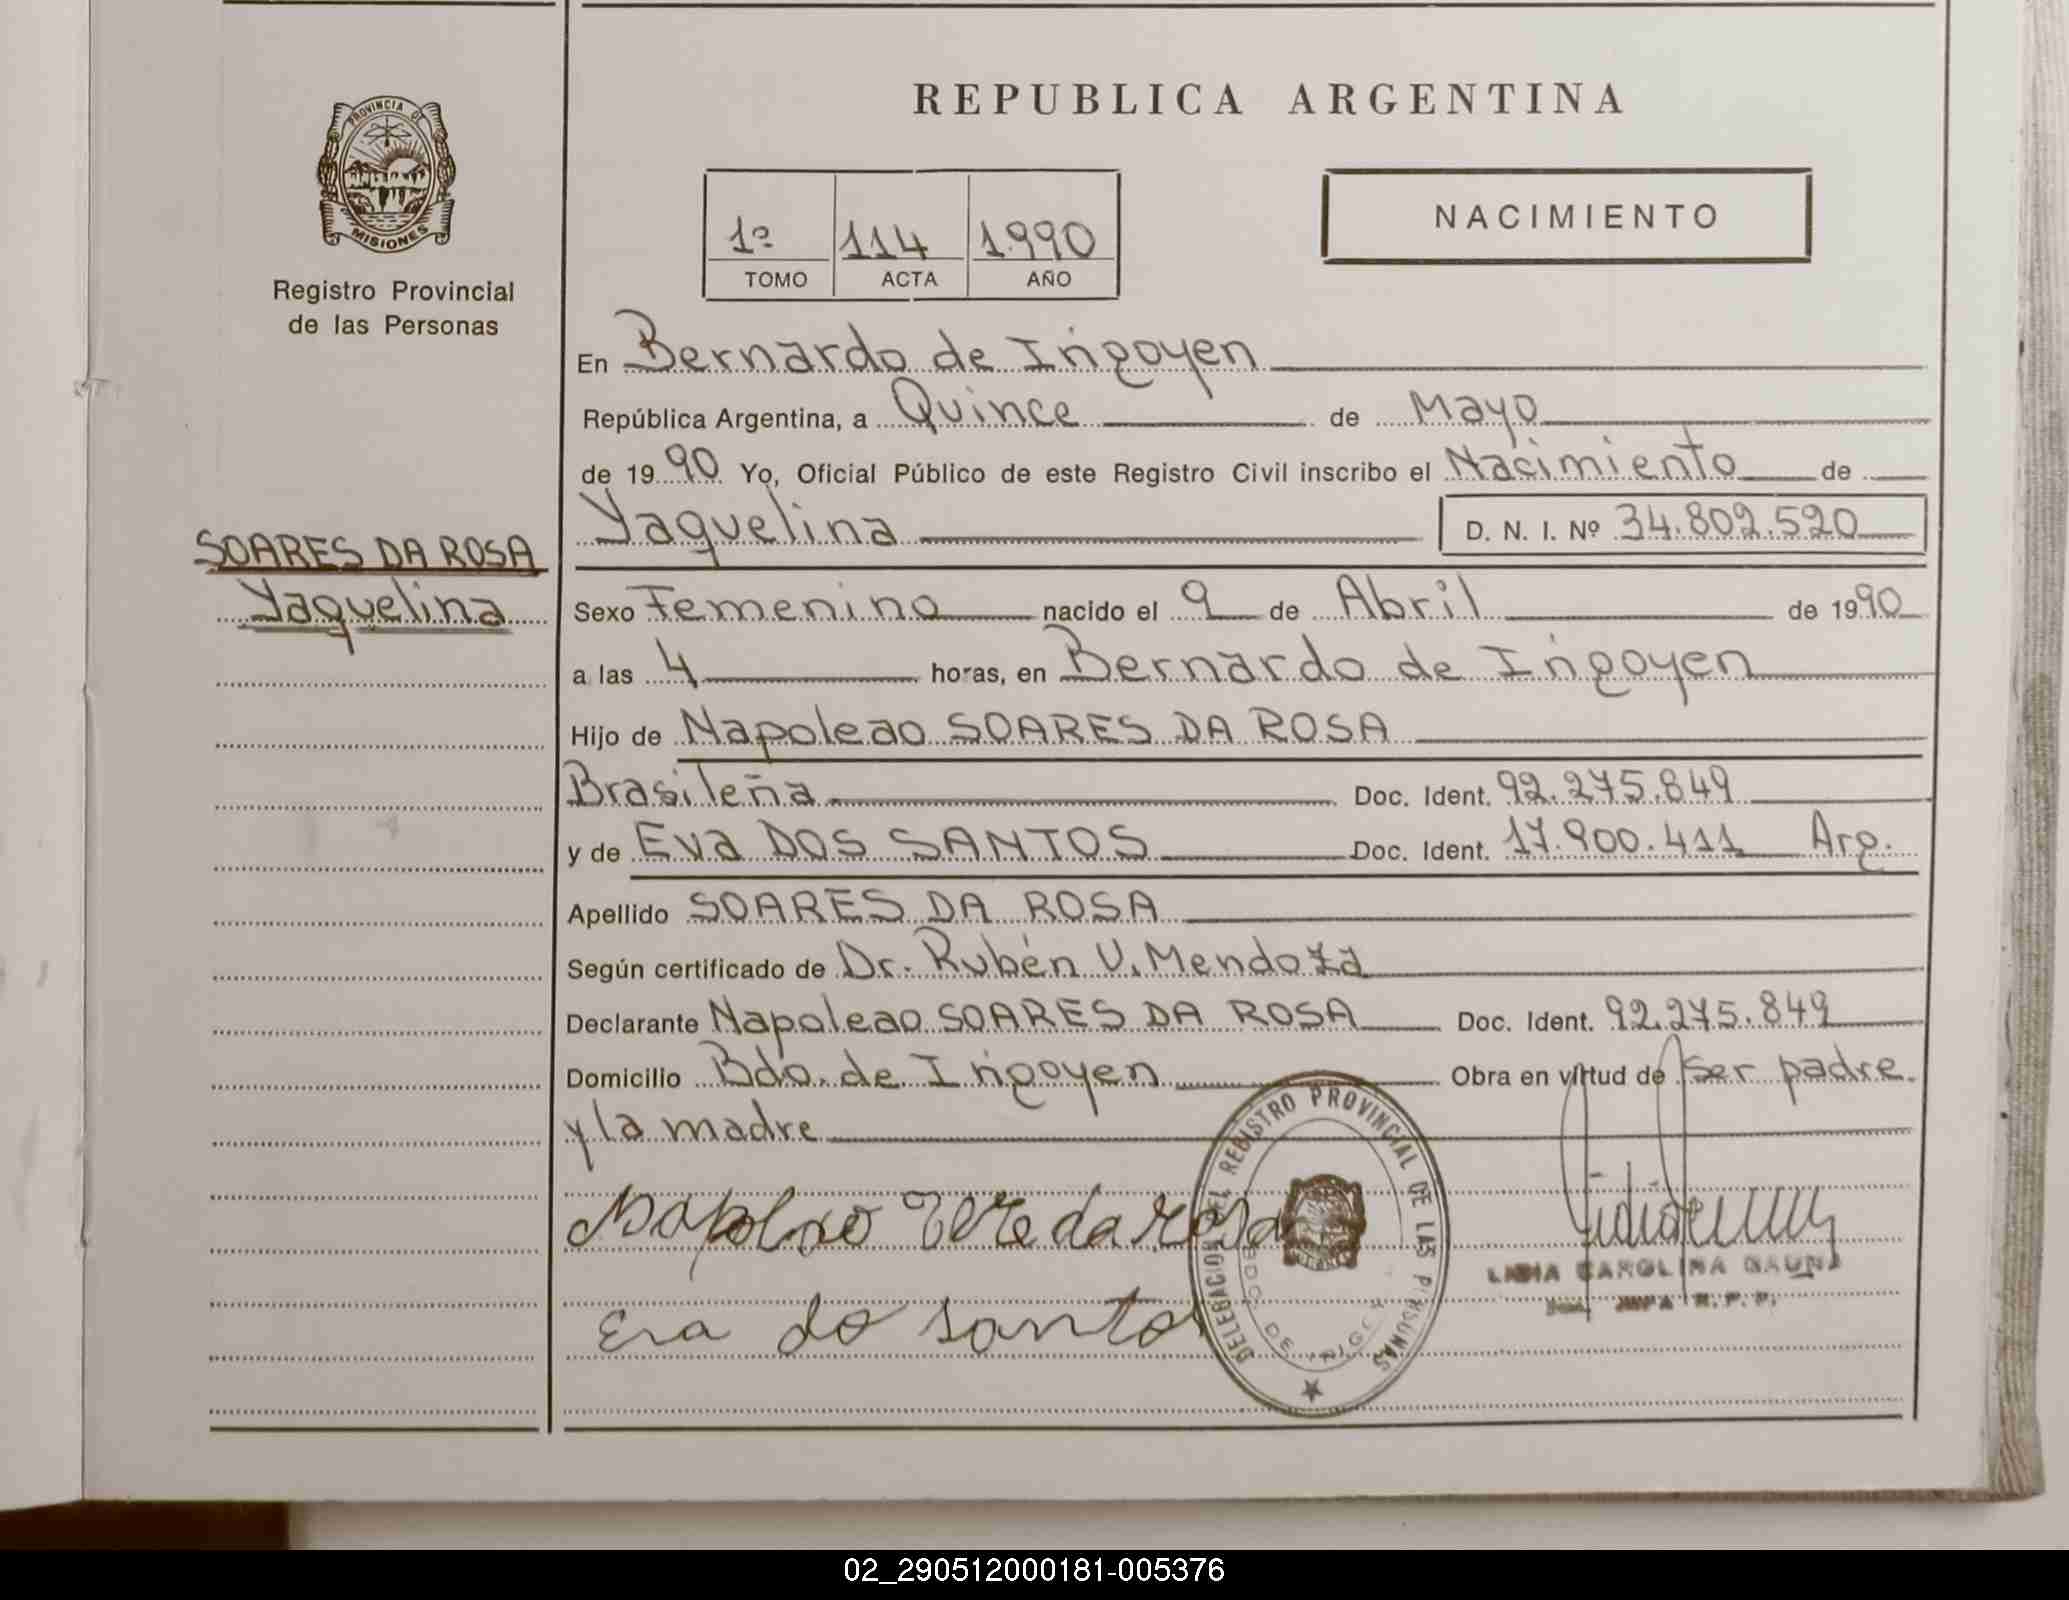 PROVINCIA DE
MISIONES
Registro Provincial
de las Personas
SOARES DA ROSA
Yaquelina
REPUBLICA ARGENTINA
1º 114 1990
TOMO ACTA AÑO
NACIMIENTO
En Bernardo de Irigoyen
República Argentina, a Quince de Mayo
de 1990 Yo, Oficial Público de este Registro Civil inscribo el Nacimiento de
Yaquelina D. N. I. Nº 34.802.520
Sexo Femenino nacido el 9 de Abril de 1990
a las 4 horas, en Bernardo de Irigoyen
Hijo de Napoleao SOARES DA ROSA
Brasileña Doc. Ident. 92.275.849
y de Eva DOS SANTOS Doc. Ident. 17.900.411 Arg.
Apellido SOARES DA ROSA
Según certificado de Dr. Rubén V. Mendoza
Declarante Napoleao SOARES DA ROSA Doc. Ident. 92.275.849
Domicilio Bdo. de Irigoyen Obra en virtud de ser padre
y la madre
da rosa
Eva do santos
DELEGACION DEL REGISTRO PROVINCIAL DE LAS PERSONAS
BDO. DE IRIGOYEN
LIDIA CAROLINA GAUNA
JEFA R. P. P.
02_290512000181-005376